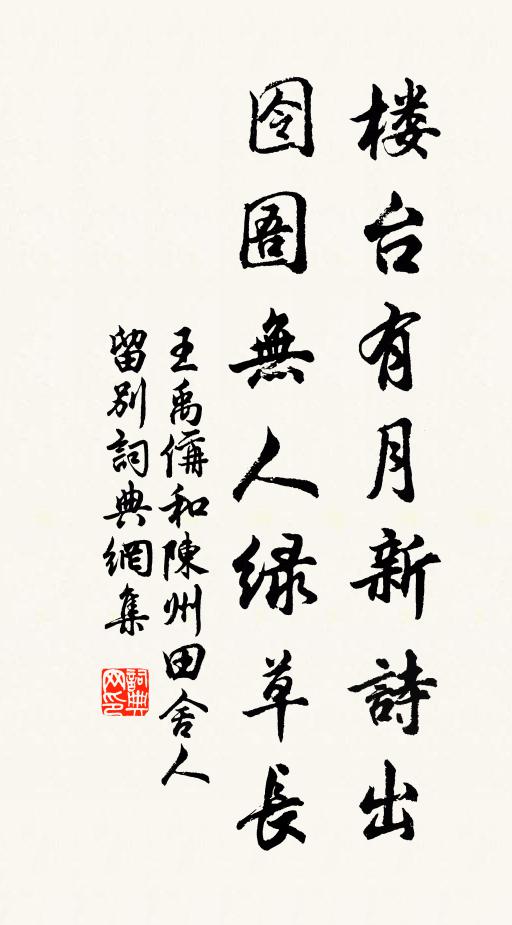 楼台有月新詩出
囹圄無人緑草長
王禹偁和陳州田舍人
留別詞典網集
詞典网印